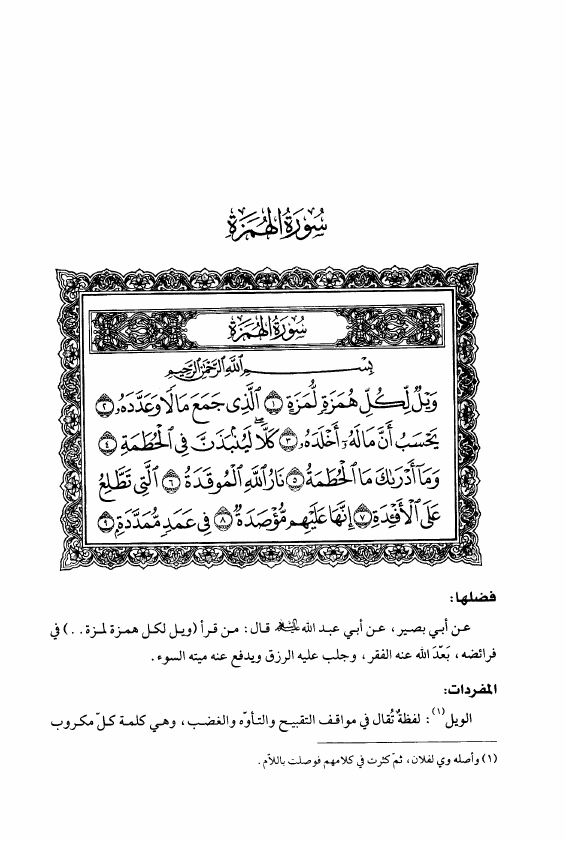 سُورَةُ الهُمَزَة
سُورَةُ الهُمَزَة
بِسْمِ اللَّهِ الرَّحْمَنِ الرَّحِيمِ
وَيْلٌ لِّكُلِّ هُمَزَةٍ لُّمَزَةٍ ١ ٱلَّذِى جَمَعَ مَالًا وَعَدَّدَهُۥ ٢
يَحْسَبُ أَنَّ مَالَهُۥٓ أَخْلَدَهُۥ ٣ كَلَّا ۖ لَيُنۢبَذَنَّ فِى ٱلْحُطَمَةِ ٤
وَمَآ أَدْرَىٰكَ مَا ٱلْحُطَمَةُ ٥ نَارُ ٱللَّهِ ٱلْمُوقَدَةُ ٦ ٱلَّتِى تَطَّلِعُ
عَلَى ٱلْأَفْـِٔدَةِ ٧ إِنَّهَا عَلَيْهِم مُّؤْصَدَةٌ ٨ فِى عَمَدٍ مُّمَدَّدَةٍۭ ٩
فضلها:
عن أبي بصير، عن أبي عبد الله عليه السلام قال: من قرأ (ويل لكل همزة لمزة..) في
فرائضه، بَعّدَ الله عنه الفقر، وجلب عليه الرزق ويدفع عنه ميته السوء.
المفردات:
الويل(١): لفظةٌ تُقال في مواقف التقبيح والتأوّه والغضب، وهي كلمة كلّ مكروب
(١) وأصله وي لفلان، ثمّ كثرت في كلامهم فوصلت باللاّم.